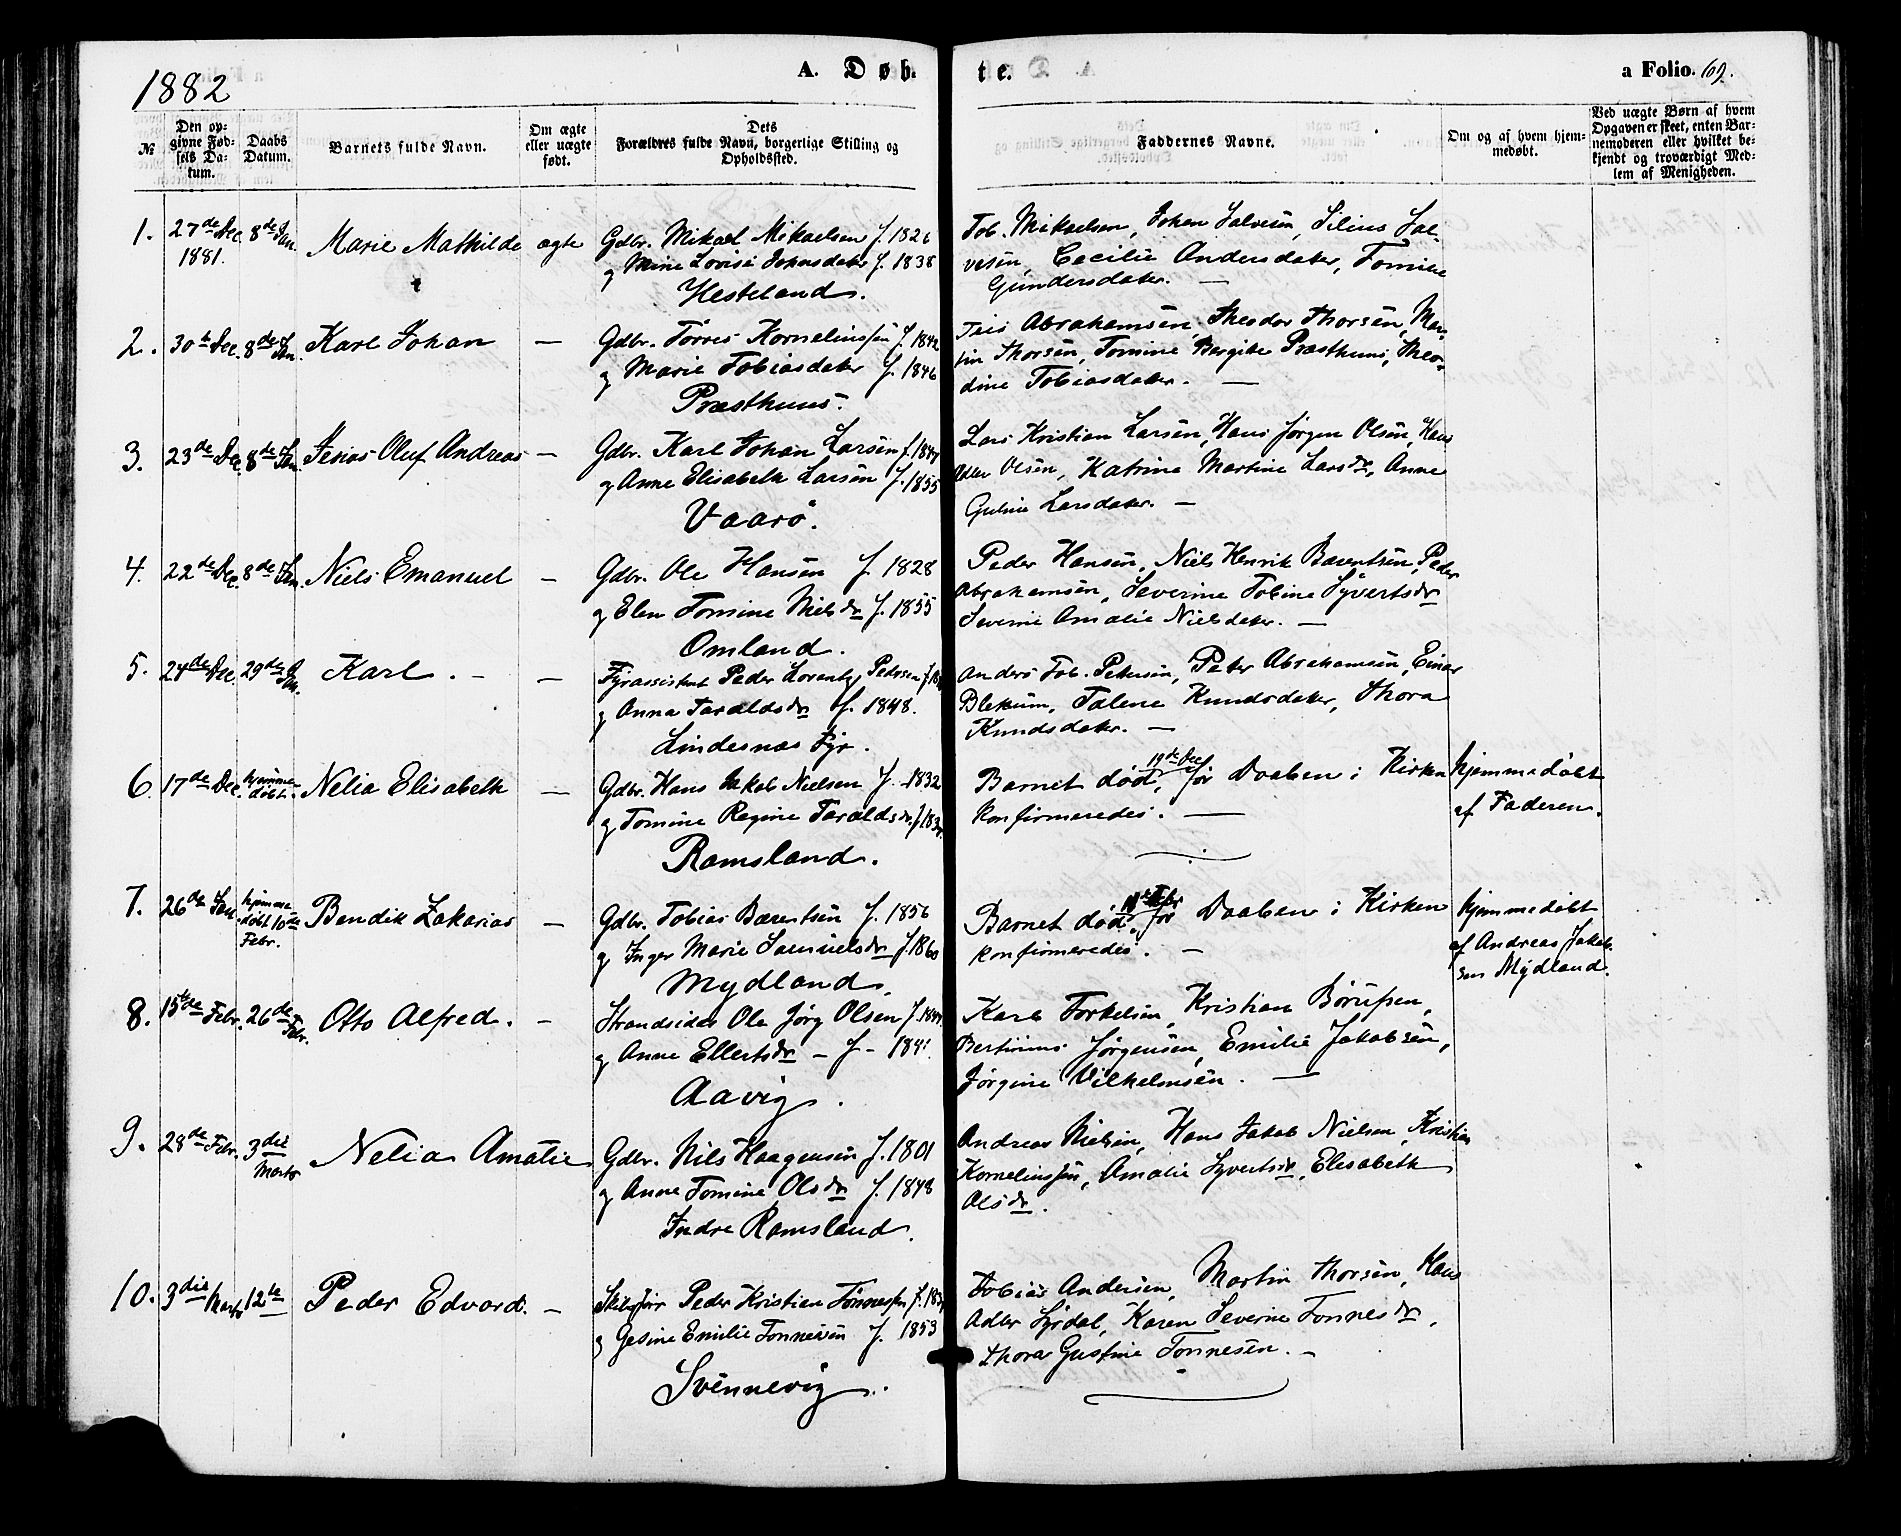 1882
A. Døb-
te.
a Folio. 69.
№
Den op-
givne Fød-
sels Da-
tum.
Daabs
Datum.
Barnets fulde Navn.
Om ægte
eller uægte
født.
Dets
Forældres fulde Navn, borgerlige Stilling og
Opholdssted.
Faddernes Navne.
Om og af hvem hjem-
medøbt.
Ved uægte Børn af hvem
Opgaven er skeet, enten Bar-
nemoderen eller hvilket be-
kjendt og troværdigt Med-
lem af Menigheden.
1. 27de Dec. 1881. 8de Jan. Marie Mathilde ægte
Gdbr. Mikael Mikaelsen f. 1826
og Mine Lovise Johnsdater f. 1838
Hesteland.
Tob. Mikaelsen, Johan Salvesen, Silius Sal-
vesen, Cecilie Andersdater, Tomine
Gundersdater. —
2. 30te Dec. 8de Jan. Karl Johan —
Gdbr. Törres Kornelinssen f. 1842
og Marie Tobiasdater f. 1846
Præsthuus.
Abrahamsen, Theodor Thorsen, Mar-
tin Thorsen, Tomine Bergitte Præsthuus, Theo-
dine Tobiasdater. —
3. 23de Dec. 8de Jan. Jenias Oluf Andreas —
Gdbr. Karl Johan Larsen f.
og Anne Elisabeth Larsen f. 1855
Vaarö.
Lars Kristian Larsen, Hans Jørgen Olsen, Hans
Adler Olsen, Katrine Martine Larsdr, Anne
Guline Larsdater. —
4. 22de Dec. 8de Jan. Niels Emanuel —
Gdbr. Ole Hansen f. 1828
og Elen Tomine Nielsdr f. 1855
Omland.
Peder Hansen, Niels Henrik Barentsen, Peder
Abrahamsen, Severine Tobine Syvertsdr
Severine Amalie Nielsdater. —
5. 24de Dec. 29de Jan. Karl. — —
Fyrassistent Peder Lorentz Petersen
og Anna Taraldsdr f. 1848.
Lindesnæs Fyr.
Anders Tob. Petersen, Peter Abrahamsen, Einar
Blekum, Talene Knudsdater, Thora
Knudsdater. —
6. 17de Dec. hjemme-
døbt. Nelia Elisabeth —
Gdbr. Hans Jakob Nielsen f. 1832
og Tomine Regine Taraldsdr
Ramsland.
Barnet död 19de Dec, før Daaben i Kirken
konfirmeredes. —
hjemmedöbt
af Faderen.
7. 26de Jan. hjemme-
döbt 10de
Febr. Bendik Zakarias —
Gdbr. Tobias Barentsen f. 1856
og Inger Marie Samuelsdr f. 1860
Mydland.
Barnet död, før Daaben i Kirken
konfirmeredes. —
hjemmedöbt
af Andreas Jakob-
sen Mydland.
8. 15de Febr. 26de Febr. Otto Alfred. —
Strandsider Ole Jørg Olsen f.
og Anne Ellertsdr — f — 1841
Aavig.
Karl Torkelsen, Kristian Börufsen,
Bertinius Jørgensen, Emilie Jakobsen,
Jørgine Vilhelmsen. —
9. 28de Febr. 3die Marts Nelia Amalie
Gdbr. Nils Haagensen f. 1801
og Anne Tomine Olsdr f. 1848
Indre Ramsland.
Andreas Nielsen, Hans Jakob Nielsen, Kristian
Kornelinssen, Amalie Syvertsdr, Elisabeth
Olsdr.
10. 3die Marts 12te Peder Edvard. —
Skibsfør Peder Kristian Tönnessen
og Gesine Emilie Tonnesen f. 1853
Svennevig.
Tobias Andersen, Martin Thorsen, Hans
Adler Syrdal, Karen Severine Tonnesdr,
Thora Gustine Tonnesen. —